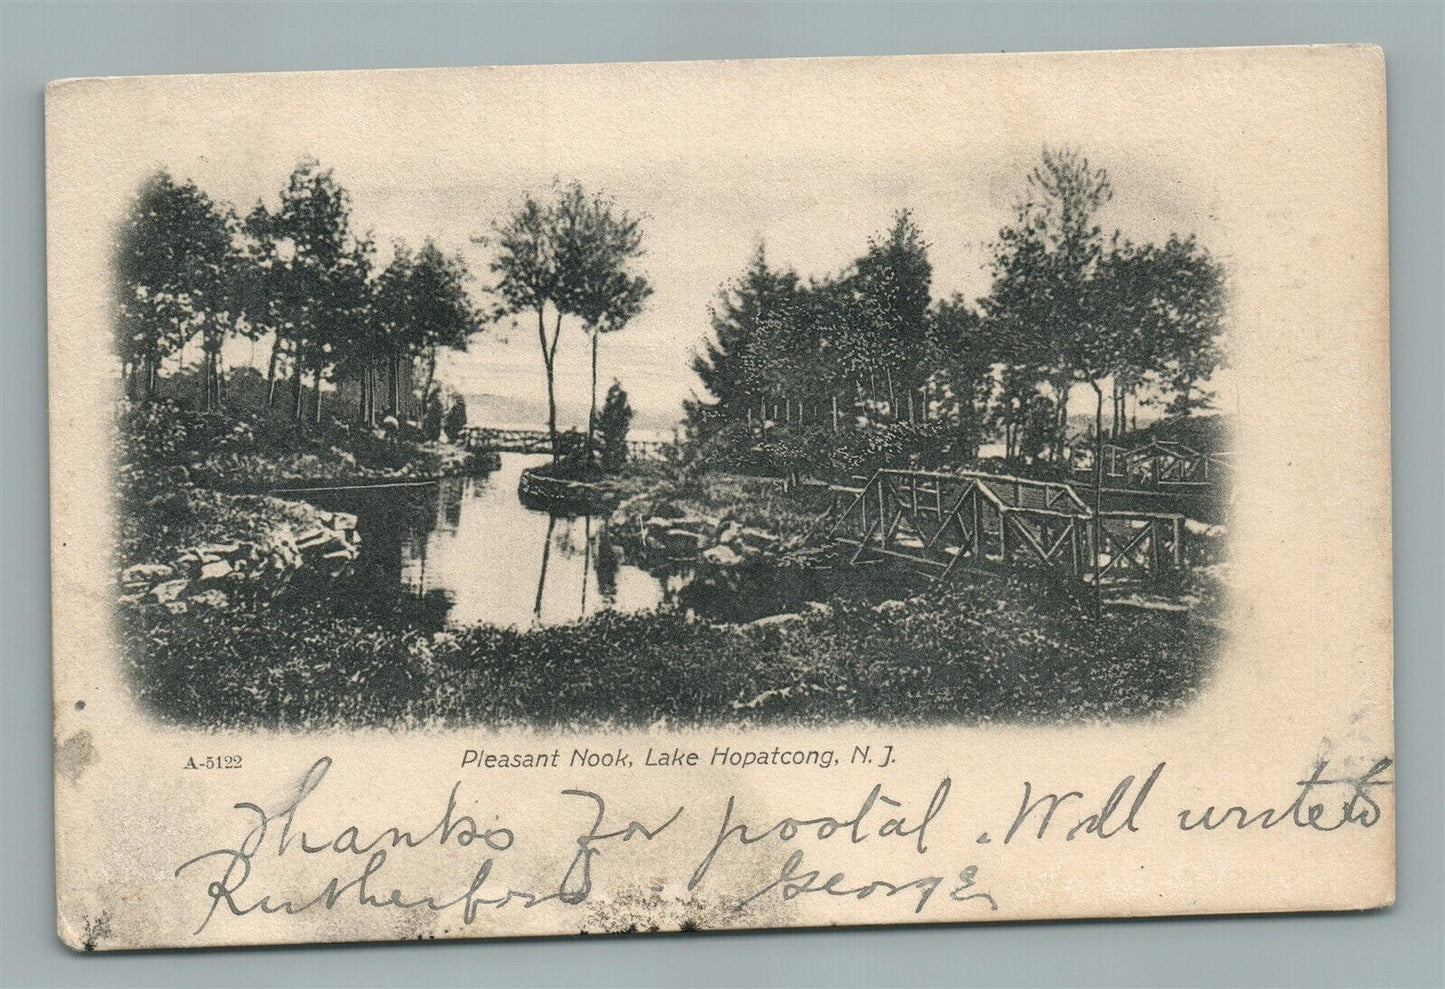 A-5122
Pleasant Nook, Lake Hopatcong, N. J.
Thanks for postal. Will write to
Rutherford George